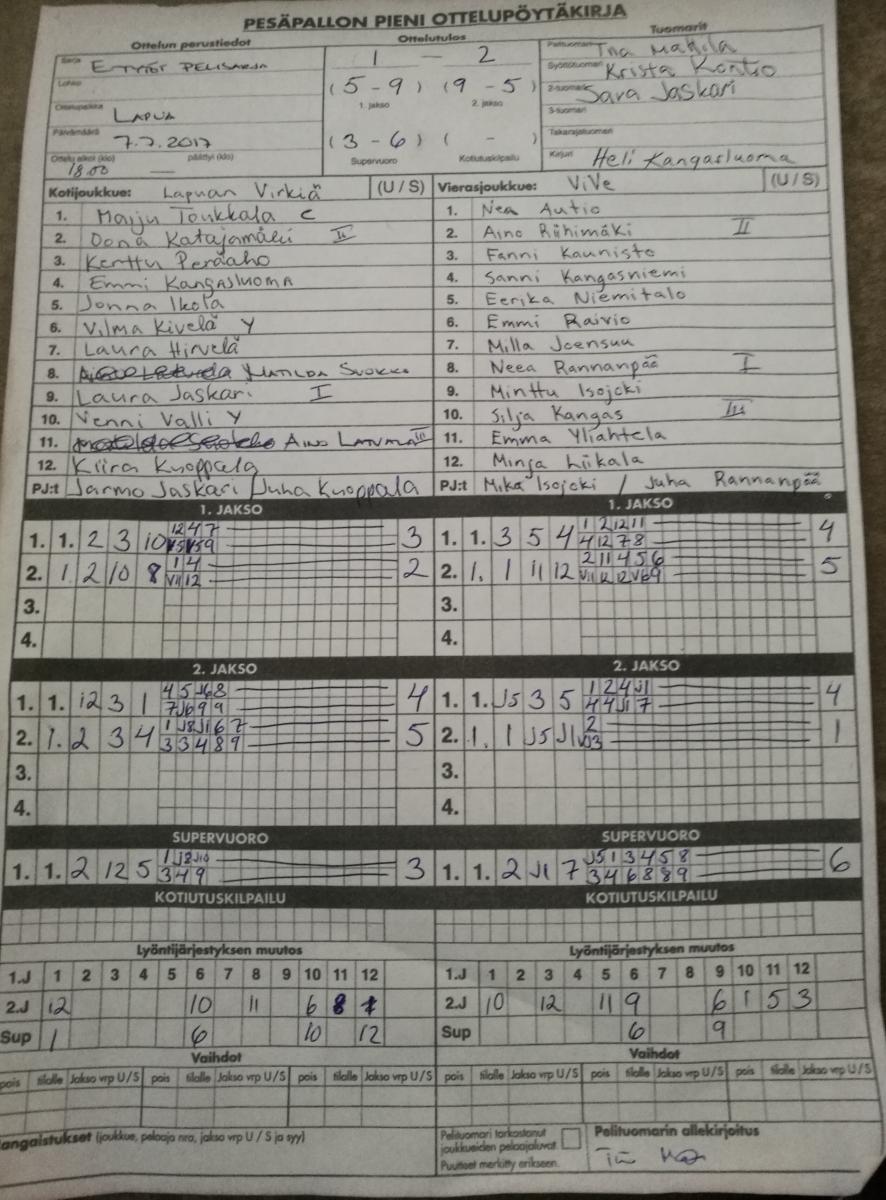 PESÄPALLON PIENI OTTELUPÖYTÄKIRJA
Ottelun perustiedot Ottelutulos Tuomarit
Sarja E-TYTÖT PELISARJA 1 — 2 Pelituomari Mattila
Lohko (5 - 9) (9 - 5) Syöttötuomari Krista Kontio
1. jakso 2. jakso 2-tuomari Sara Jaskari
Ottelupaikka LAPUA 3-tuomari
Päivämäärä 7.7.2017 (3 - 6) ( - ) Takarajatuomari
Ottelu alkoi (klo) päättyi (klo) Supervuoro Kotiutuskilpailu Kirjuri Heli Kangasluoma
18.00 —
Kotijoukkue: Lapuan Virkiä (U / S) Vierasjoukkue: ViVe (U / S)
1. Maiju Toukkala C 1. Nea Autio
2. Oona Katajamäki II 2. Aino Riihimäki II
3. Kerttu Peräaho 3. Fanni Kaunisto
4. Emmi Kangasluoma 4. Sanni Kangasniemi
5. Jonna Ikola 5. Eerika Niemitalo
6. Vilma Kivelä Y 6. Emmi Raivio
7. Laura Hirvelä 7. Milla Joensuu
8. MATILDA SUOKKO 8. Neea Rannanpää I
9. Laura Jaskari I 9. Minttu Isojoki
10. Venni Valli Y 10. Silja Kangas III
11. AINO LATVALA III 11. Emma Yliahtela
12. Kiira Kuoppala 12. Minja Liikala
PJ:t Jarmo Jaskari / Juha Kuoppala PJ:t Mika Isojoki / Juha Rannanpää
1. JAKSO 1. JAKSO
1. 1. 2 3 10 12 4 7 3 1. 1. 3 5 4 1 2 12 11 4
4 12 7 8
2. 1. 2 10 8 1 4 2 2. 1. 1 11 12 2 11 4 5 6 5
V11 12
3. 3.
4. 4.
2. JAKSO 2. JAKSO
1. 1. 12 3 1 4 5 J6 8 4 1. 1. J5 3 5 1 2 4 J1 4
7 J6 9 9 4 4 J1 7
2. 1. 2 3 4 1 J8 J1 6 7 5 2. 1. 1 J5 J1 2 1
3 3 4 8 9
3. 3.
4. 4.
SUPERVUORO SUPERVUORO
1. 1. 2 12 5 1 J2 J10 3 1. 1. 2 J1 7 J5 1 3 4 5 8 6
3 4 9 3 4 6 8 8 9
KOTIUTUSKILPAILU KOTIUTUSKILPAILU
Lyöntijärjestyksen muutos Lyöntijärjestyksen muutos
1.J 1 2 3 4 5 6 7 8 9 10 11 12 1.J 1 2 3 4 5 6 7 8 9 10 11 12
2.J 12 10 11 6 8 2.J 10 12 11 9 6 1 5 3
Sup 1 6 10 12 Sup 6 9
Vaihdot Vaihdot
pois tilalle Jakso vrp U/S pois tilalle Jakso vrp U/S pois tilalle Jakso vrp U/S pois tilalle Jakso vrp U/S pois tilalle Jakso vrp U/S pois tilalle Jakso vrp U/S
angaistukset (joukkue, pelaaja nro, jakso vrp U / S ja syy) Pelituomari tarkastanut Pelituomarin allekirjoitus
joukkueiden pelaajaluvat.
Puutteet merkitty erikseen.